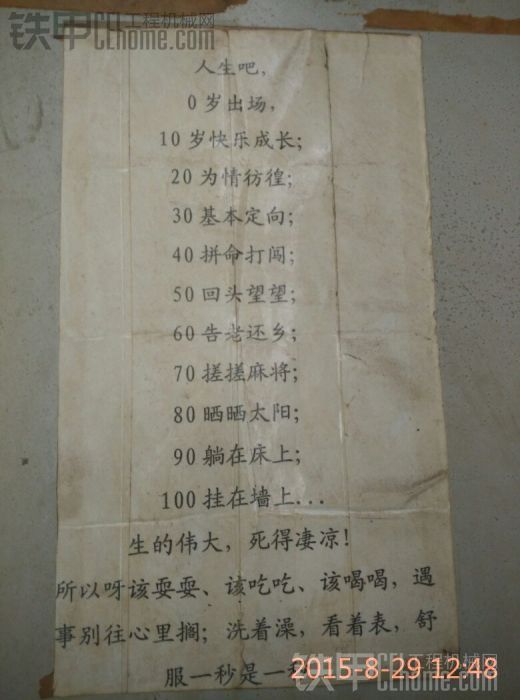 铁甲 工程机械网
Cehome.com
人生吧,
0岁出场,
10岁快乐成长;
20为情彷徨;
30基本定向;
40拼命打闯;
50回头望望;
60告老还乡;
70搓搓麻将;
80晒晒太阳;
90躺在床上;
100挂在墙上...
生的伟大,死得凄凉!
所以呀该耍耍、该吃吃、该喝喝,遇
事别往心里搁;洗着澡,看着表,舒
服一秒是一
2015-8-29 12:48
铁甲 工程机械网
Cehome.com